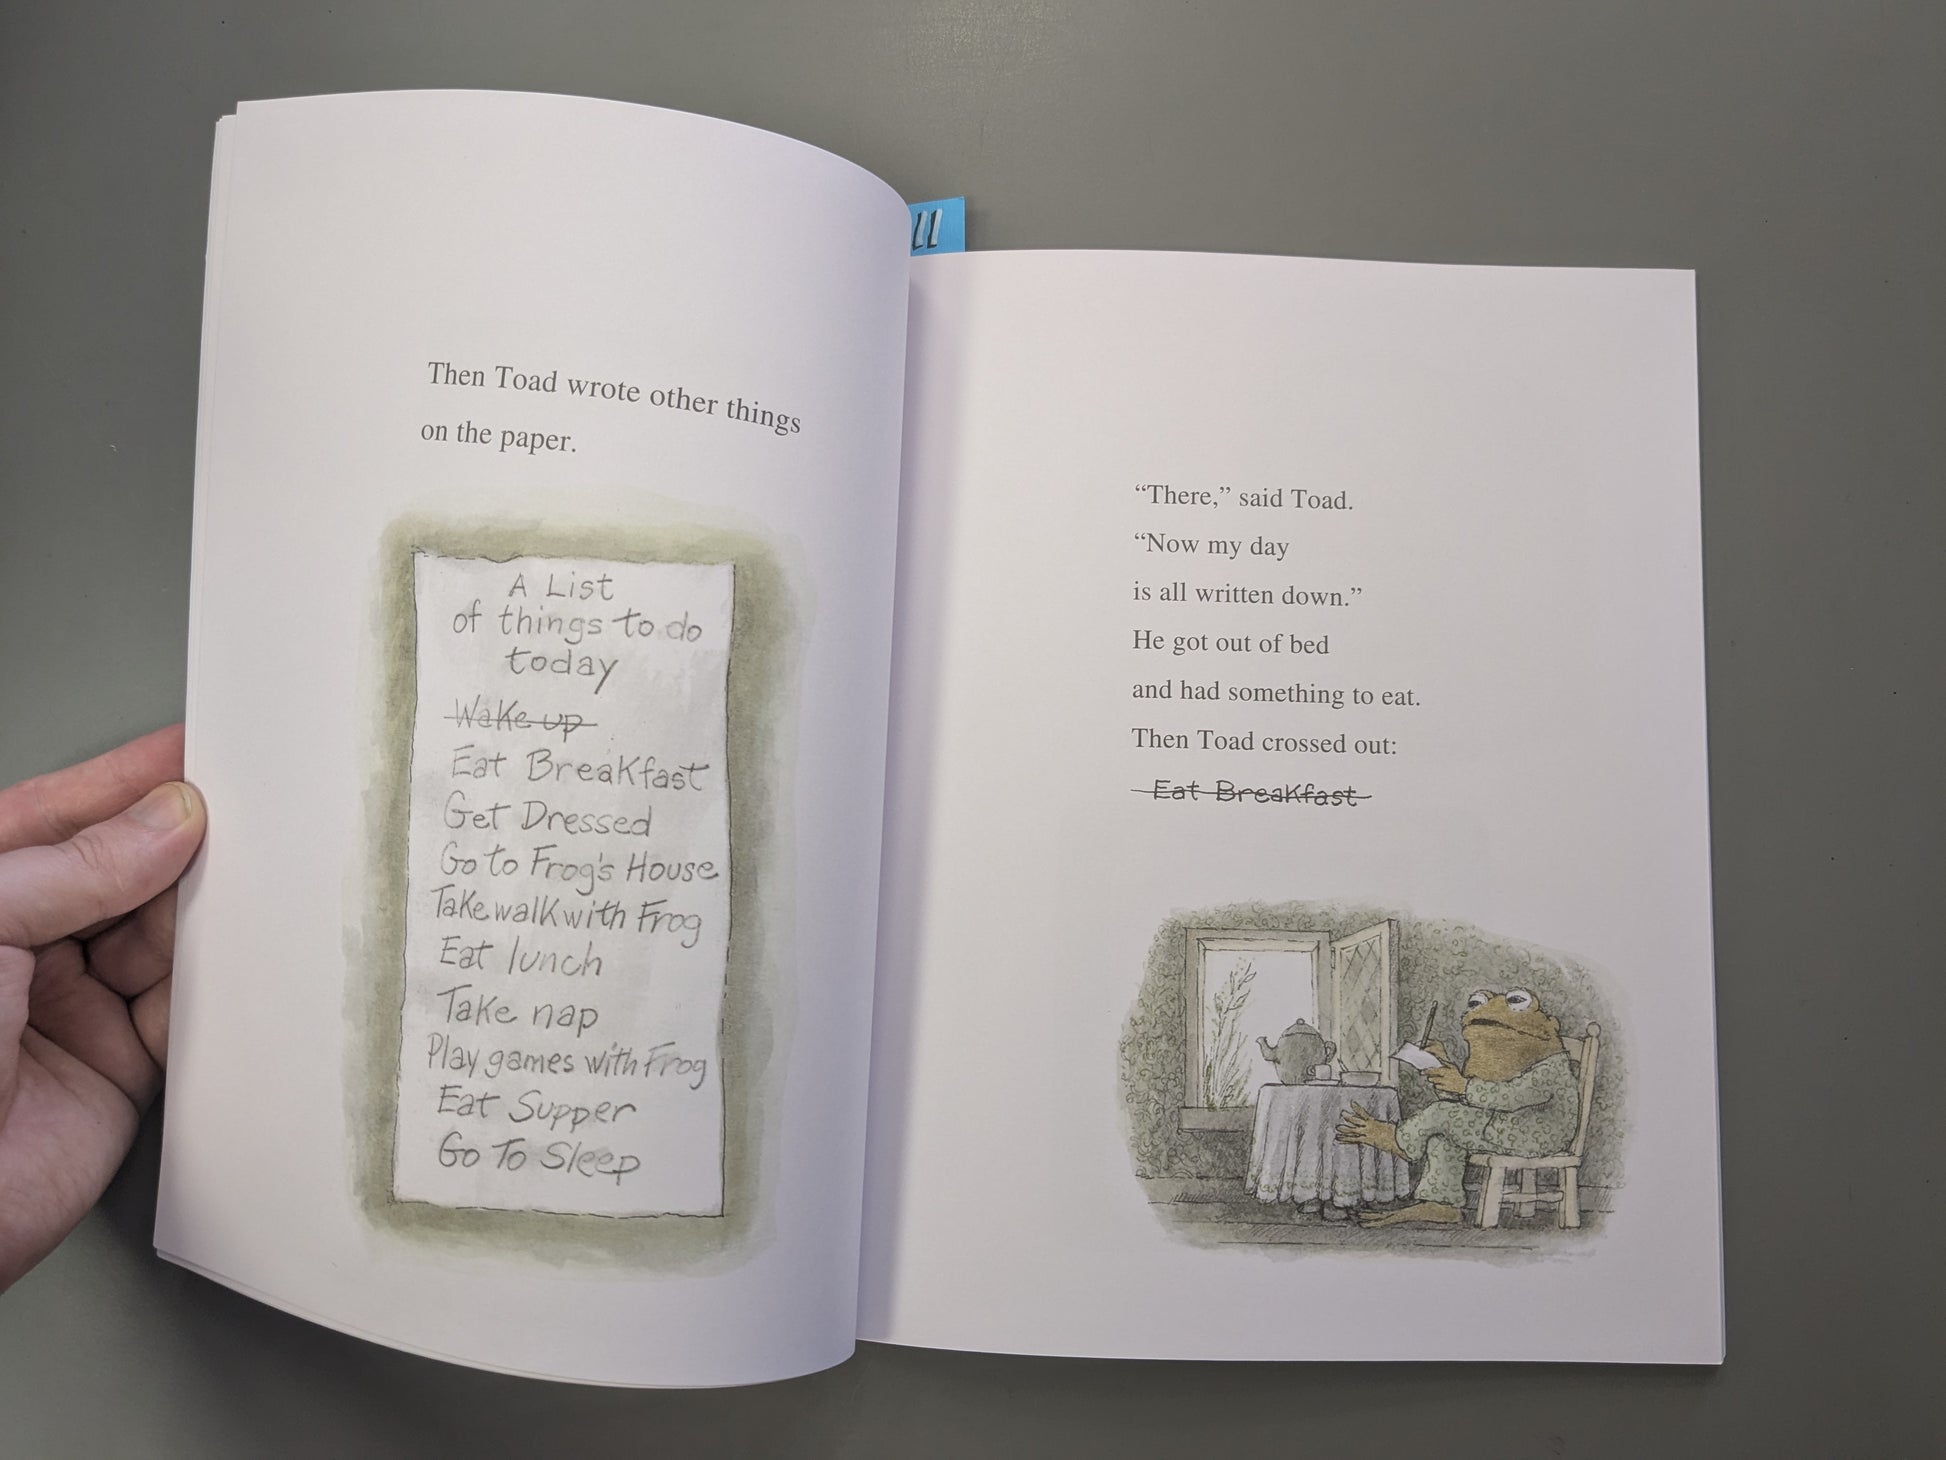 Then Toad wrote other things
on the paper.
A List
of things to do
today
Wake up
Eat Breakfast
Get Dressed
Go to Frog's House
Take walk with Frog
Eat lunch
Take nap
Play games with Frog
Eat Supper
Go To Sleep
“There,” said Toad.
“Now my day
is all written down.”
He got out of bed
and had something to eat.
Then Toad crossed out:
Eat Breakfast